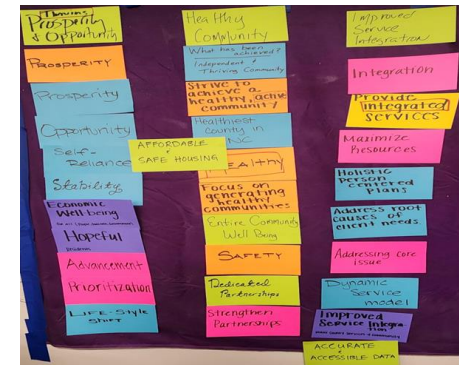 Thriving
Prosperity
& Opportunity
Prosperity
Prosperity
Opportunity
Self-
Reliance
Stability
Economic
Well being
Hopeful
Advancement
Prioritization
Life-Style
Shift
Healthy
Community
What has been
achieved?
Independent &
Thriving Community
Strive to
achieve a
healthy, active
community
Healthiest
County in
NC
AFFORDABLE
SAFE HOUSING
Healthy
Focus on
generating
healthy
communities
Entire Community
Well Being
SAFETY
Dedicated
Partnerships
Strengthen
Partnerships
Improved
Service
Integration
Integration
Provide
integrated
services
Maximize
Resources
Holistic
person
centered
plans
Address root
causes of
client needs
Addressing core
issue
Dynamic
Service
model
Improved
Service Integra-
tion
ACCURATE
ACCESSIBLE DATA